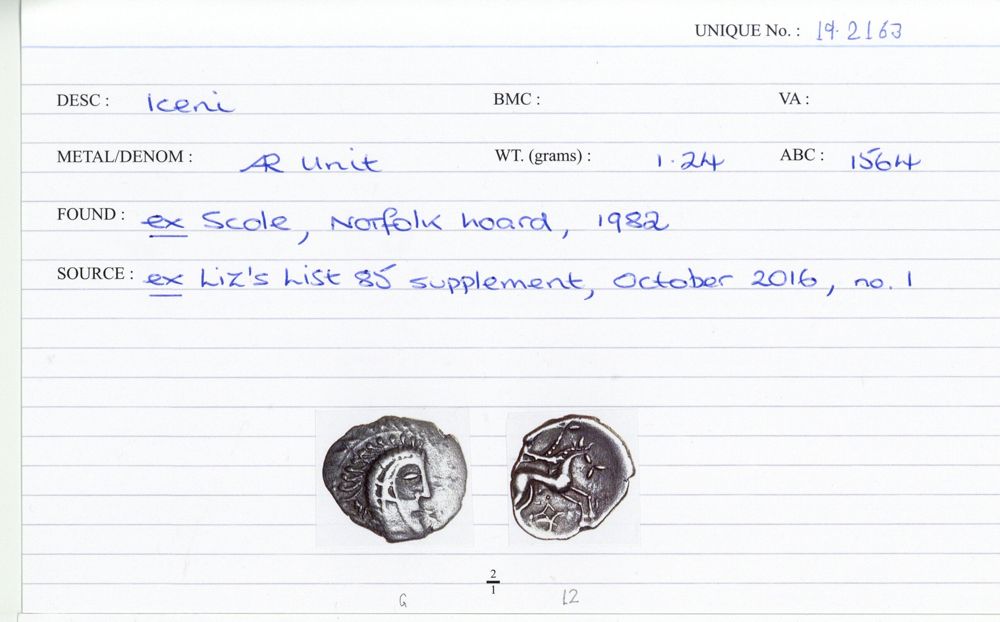 UNIQUE No. : 19.2163
DESC : Iceni BMC : VA :
METAL/DENOM : AR Unit WT. (grams) : 1.24 ABC : 1564
FOUND : ex Scole, Norfolk hoard, 1982
SOURCE : ex Liz's List 85 supplement, October 2016, no. 1
2
1
G 12